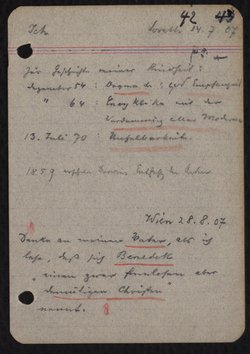 42 43
Ich Loretto 14.7.07
Zur Geschichte meiner Kindheit:
Dezember 54: Dogma der Empfängnis
" 64: Encyklika mit der
Verdammung aller Moderne
13. Juli 70: Unfehlbarkeit
1859 Darwins der Arten
Wien 28.8.07
Denke an meinen Vater, als ich
lese, daß sich Benedek
"einen zwar aber
demütigen Christen"
nennt.